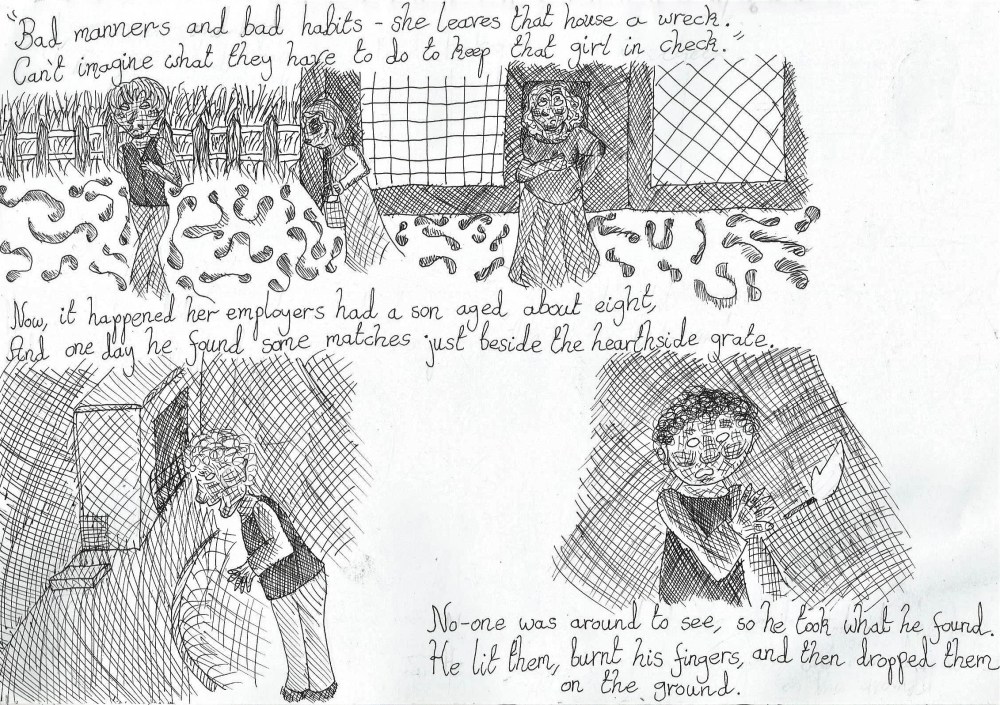 "Bad manners and bad habits - she leaves that house a wreck.
Can't imagine what they have to do to keep that girl in check."
Now, it happened her employers had a son aged about eight,
And one day he found some matches just beside the hearthside grate.
No-one was around to see, so he took what he found.
He lit them, burnt his fingers, and then dropped them
on the ground.